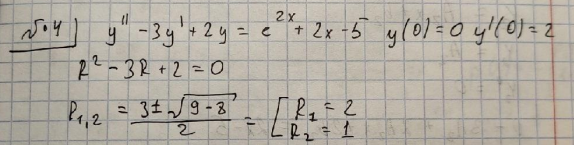 №4) y'' - 3y' + 2y = e^{2x} + 2x - 5 y(0) = 0 y'(0) = 2
R² - 3R + 2 = 0
R₁,₂ = (3 ± √(9 - 8)) / 2 = [ R₁ = 2
R₂ = 1